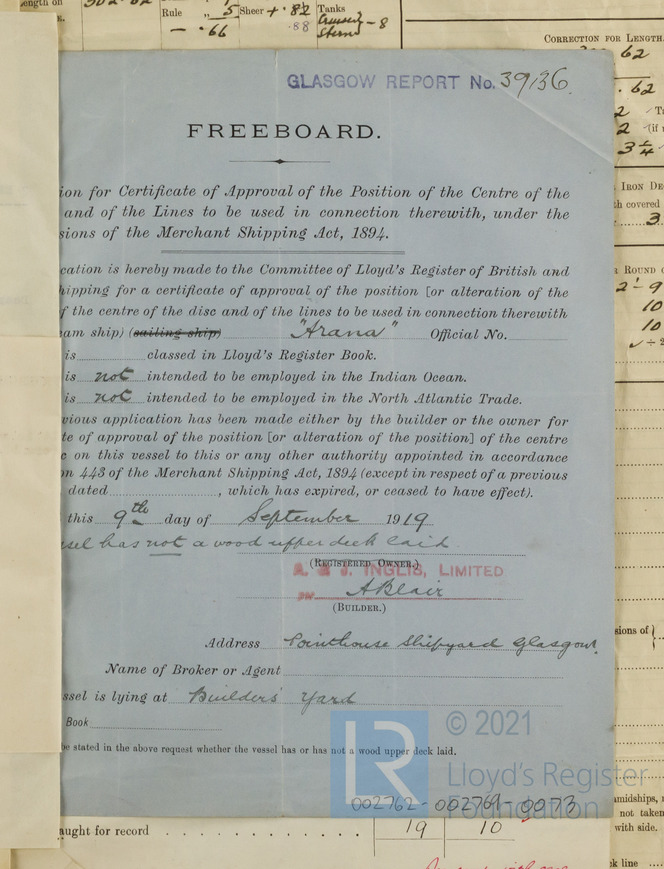 ength on
Rule „ 5 Sheer + .82 Tanks
— .66 .88 Cruiser Stern - 8
CORRECTION FOR LENGTH.
62
. 62
2
2 (if
3 1/4
IRON DE
th covered
3.
ROUND O
2' - 9
10
10
÷ 2
GLASGOW REPORT No. 39136.
FREEBOARD.
ion for Certificate of Approval of the Position of the Centre of the
and of the Lines to be used in connection therewith, under the
sions of the Merchant Shipping Act, 1894.
cation is hereby made to the Committee of Lloyd's Register of British and
hipping for a certificate of approval of the position [or alteration of the
f the centre of the disc and of the lines to be used in connection therewith
am ship) (sailing ship) "Arana" Official No.
is classed in Lloyd's Register Book.
is not intended to be employed in the Indian Ocean.
is not intended to be employed in the North Atlantic Trade.
vious application has been made either by the builder or the owner for
te of approval of the position [or alteration of the position] of the centre
c on this vessel to this or any other authority appointed in accordance
on 443 of the Merchant Shipping Act, 1894 (except in respect of a previous
dated , which has expired, or ceased to have effect).
this 9th day of September 1919
ssel has not a wood upper deck laid
(REGISTERED OWNER.)
A. & J. INGLIS, LIMITED
ABlair
(BUILDER.)
Address Pointhouse Shipyard Glasgow.
Name of Broker or Agent
ssel is lying at Builders' Yard
Book
be stated in the above request whether the vessel has or has not a wood upper deck laid.
LR
© 2021
Lloyd's Register
Foundation
002762-002769-0073
sions of
amidships,
not taken
with side.
aught for record 19 10
ck line